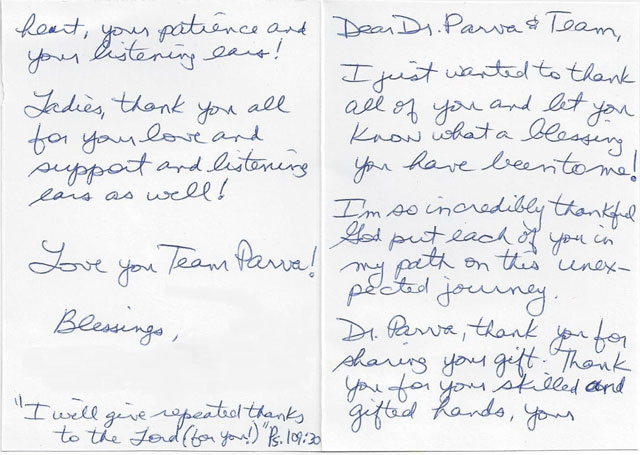 Dear Dr. Parva & Team,
I just wanted to thank
all of you and let you
know what a blessing
you have been to me!
I'm so incredibly thankful
God put each of you in
my path on this unex-
pected journey.
Dr. Parva, thank you for
sharing your gift. Thank
you for your skilled and
gifted hands, your
heart, your patience and
your listening ears!
Ladies, thank you all
for your love and
support and listening
ears as well!
Love you Team Parva!
Blessings,
"I will give repeated thanks
to the Lord (for you!)" Ps. 109:30